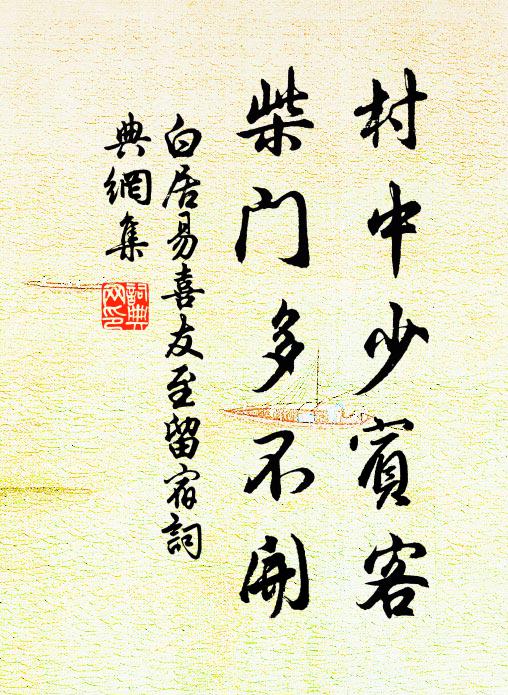 村中少賓客
柴門多不開
白居易喜友至留宿詞
典網集
詞典
网印